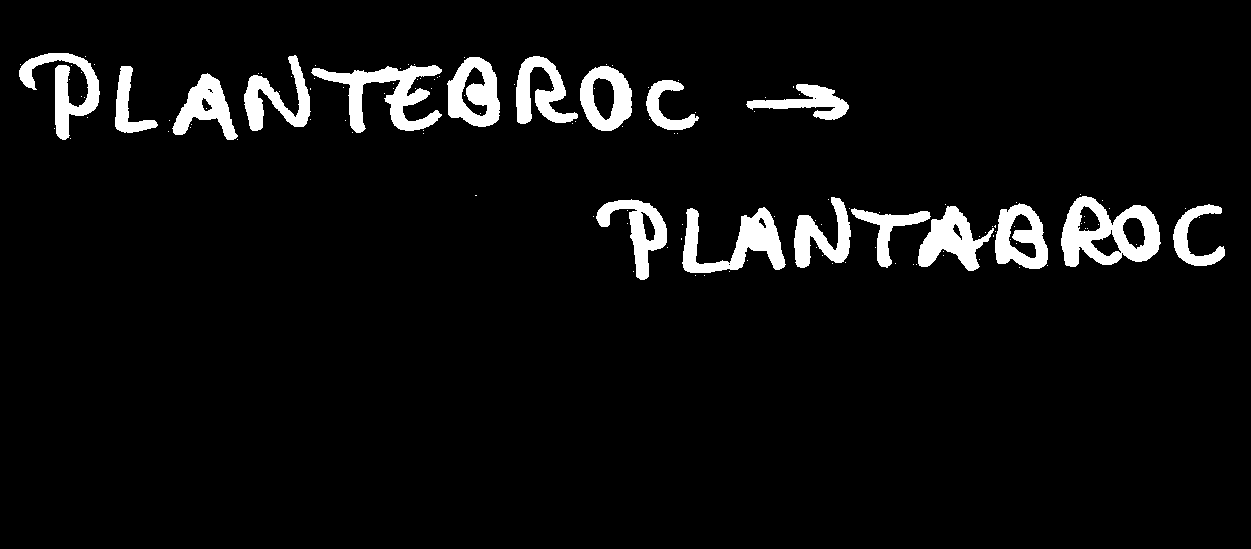 PLANTEBROC →
PLANTABROC